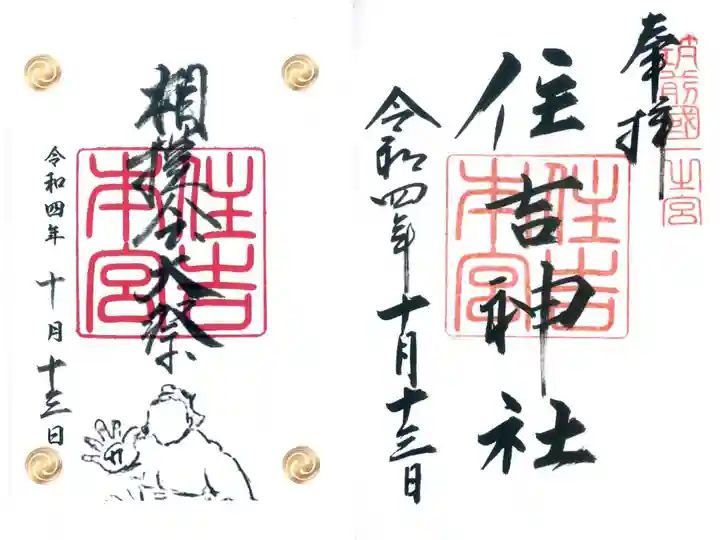 奉拝
筑前國一之宮
住吉神社
住吉本宮
令和四年十月十三日
相撲会大祭
住吉本宮
令和四年 十月十三日